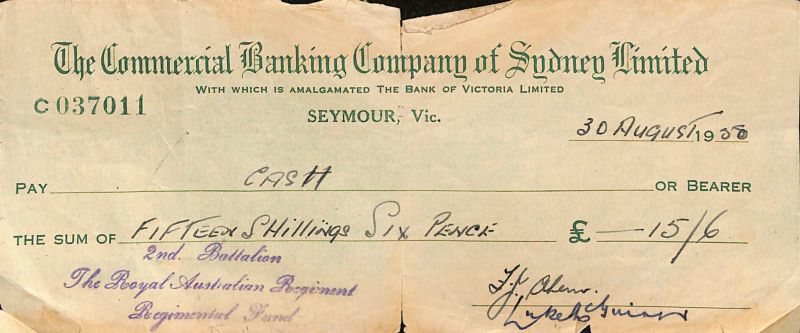 The Commercial Banking Company of Sydney Limited
WITH WHICH IS AMALGAMATED THE BANK OF VICTORIA LIMITED
C 037011
SEYMOUR, VIC.
30 AUGUST 1950
PAY CASH OR BEARER
THE SUM OF FIFTEEN SHILLINGS SIX PENCE £ —15/6
2nd. Battalion
The Royal Australian Regiment
Regimental Fund